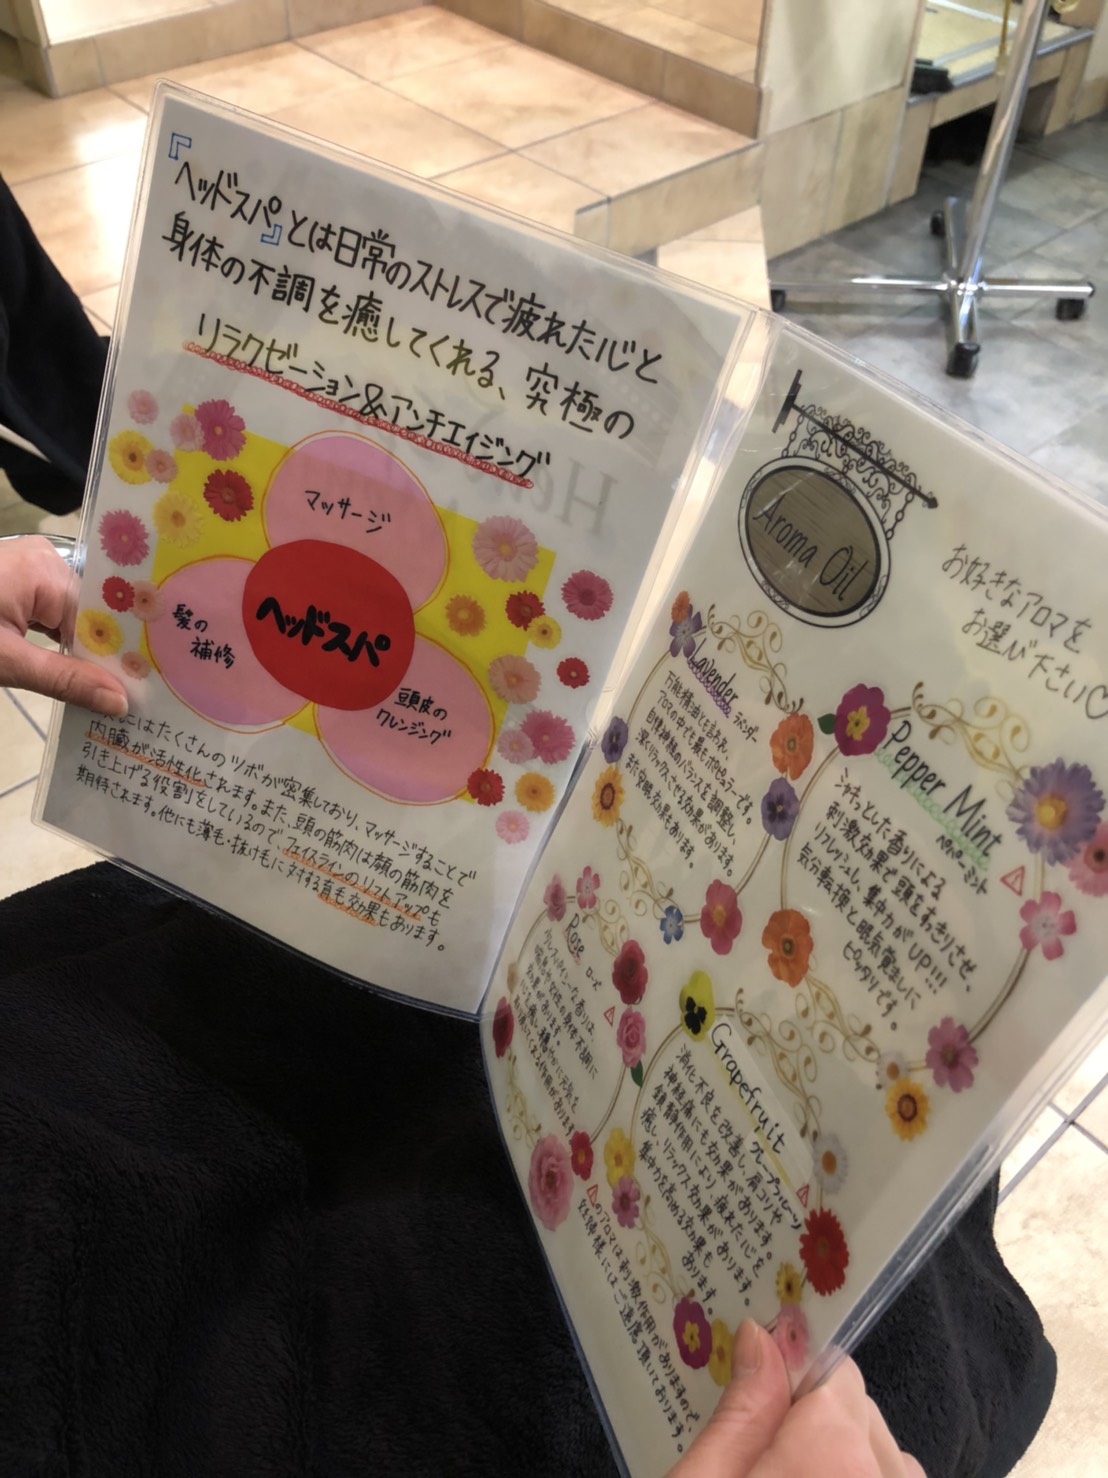 『ヘッドスパ』とは日常のストレスで疲れた心と
身体の不調を癒してくれる、究極の
リラクゼーション&アンチエイジング
マッサージ
ヘッドスパ
髪の
補修
頭皮の
クレンジング
にはたくさんのツボが密集しており、マッサージすることで
内臓が活性化されます。また、頭の筋肉は顔の筋肉を
引き上げる役割をしているので、フェイスラインのリフトアップも
期待されます。他にも薄毛・抜け毛に対する育毛効果もあります。
Aroma Oil
お好きなアロマを
お選び下さい♡
Lavender ラベンダー
万能精油と言われ、
アロマの中でも最もポピュラーです。
自律神経のバランスを調整し、
深くリラックスさせる効果があります。
また安眠効果もあります。
Pepper Mint ペパーミント
シャキっとした香りによる
刺激効果で頭をすっきりさせ、
リフレッシュし、集中力がUP!!!
気分転換と眠気覚ましに
ピッタリです。
Rose ローズ
香りは、
女性の身体不調に
効果があります。
心を癒し、穏やかに元気を
作用があります
Grapefruit グレープフルーツ
消化不良を改善し、肩コリや
神経痛にも効果があります。
鎮静作用により、疲れた心を
癒し、リラックス効果があります。
集中力を高める効果も
あります。
のアロマは刺激作用がありますので、
妊婦様にはご遠慮頂いております。